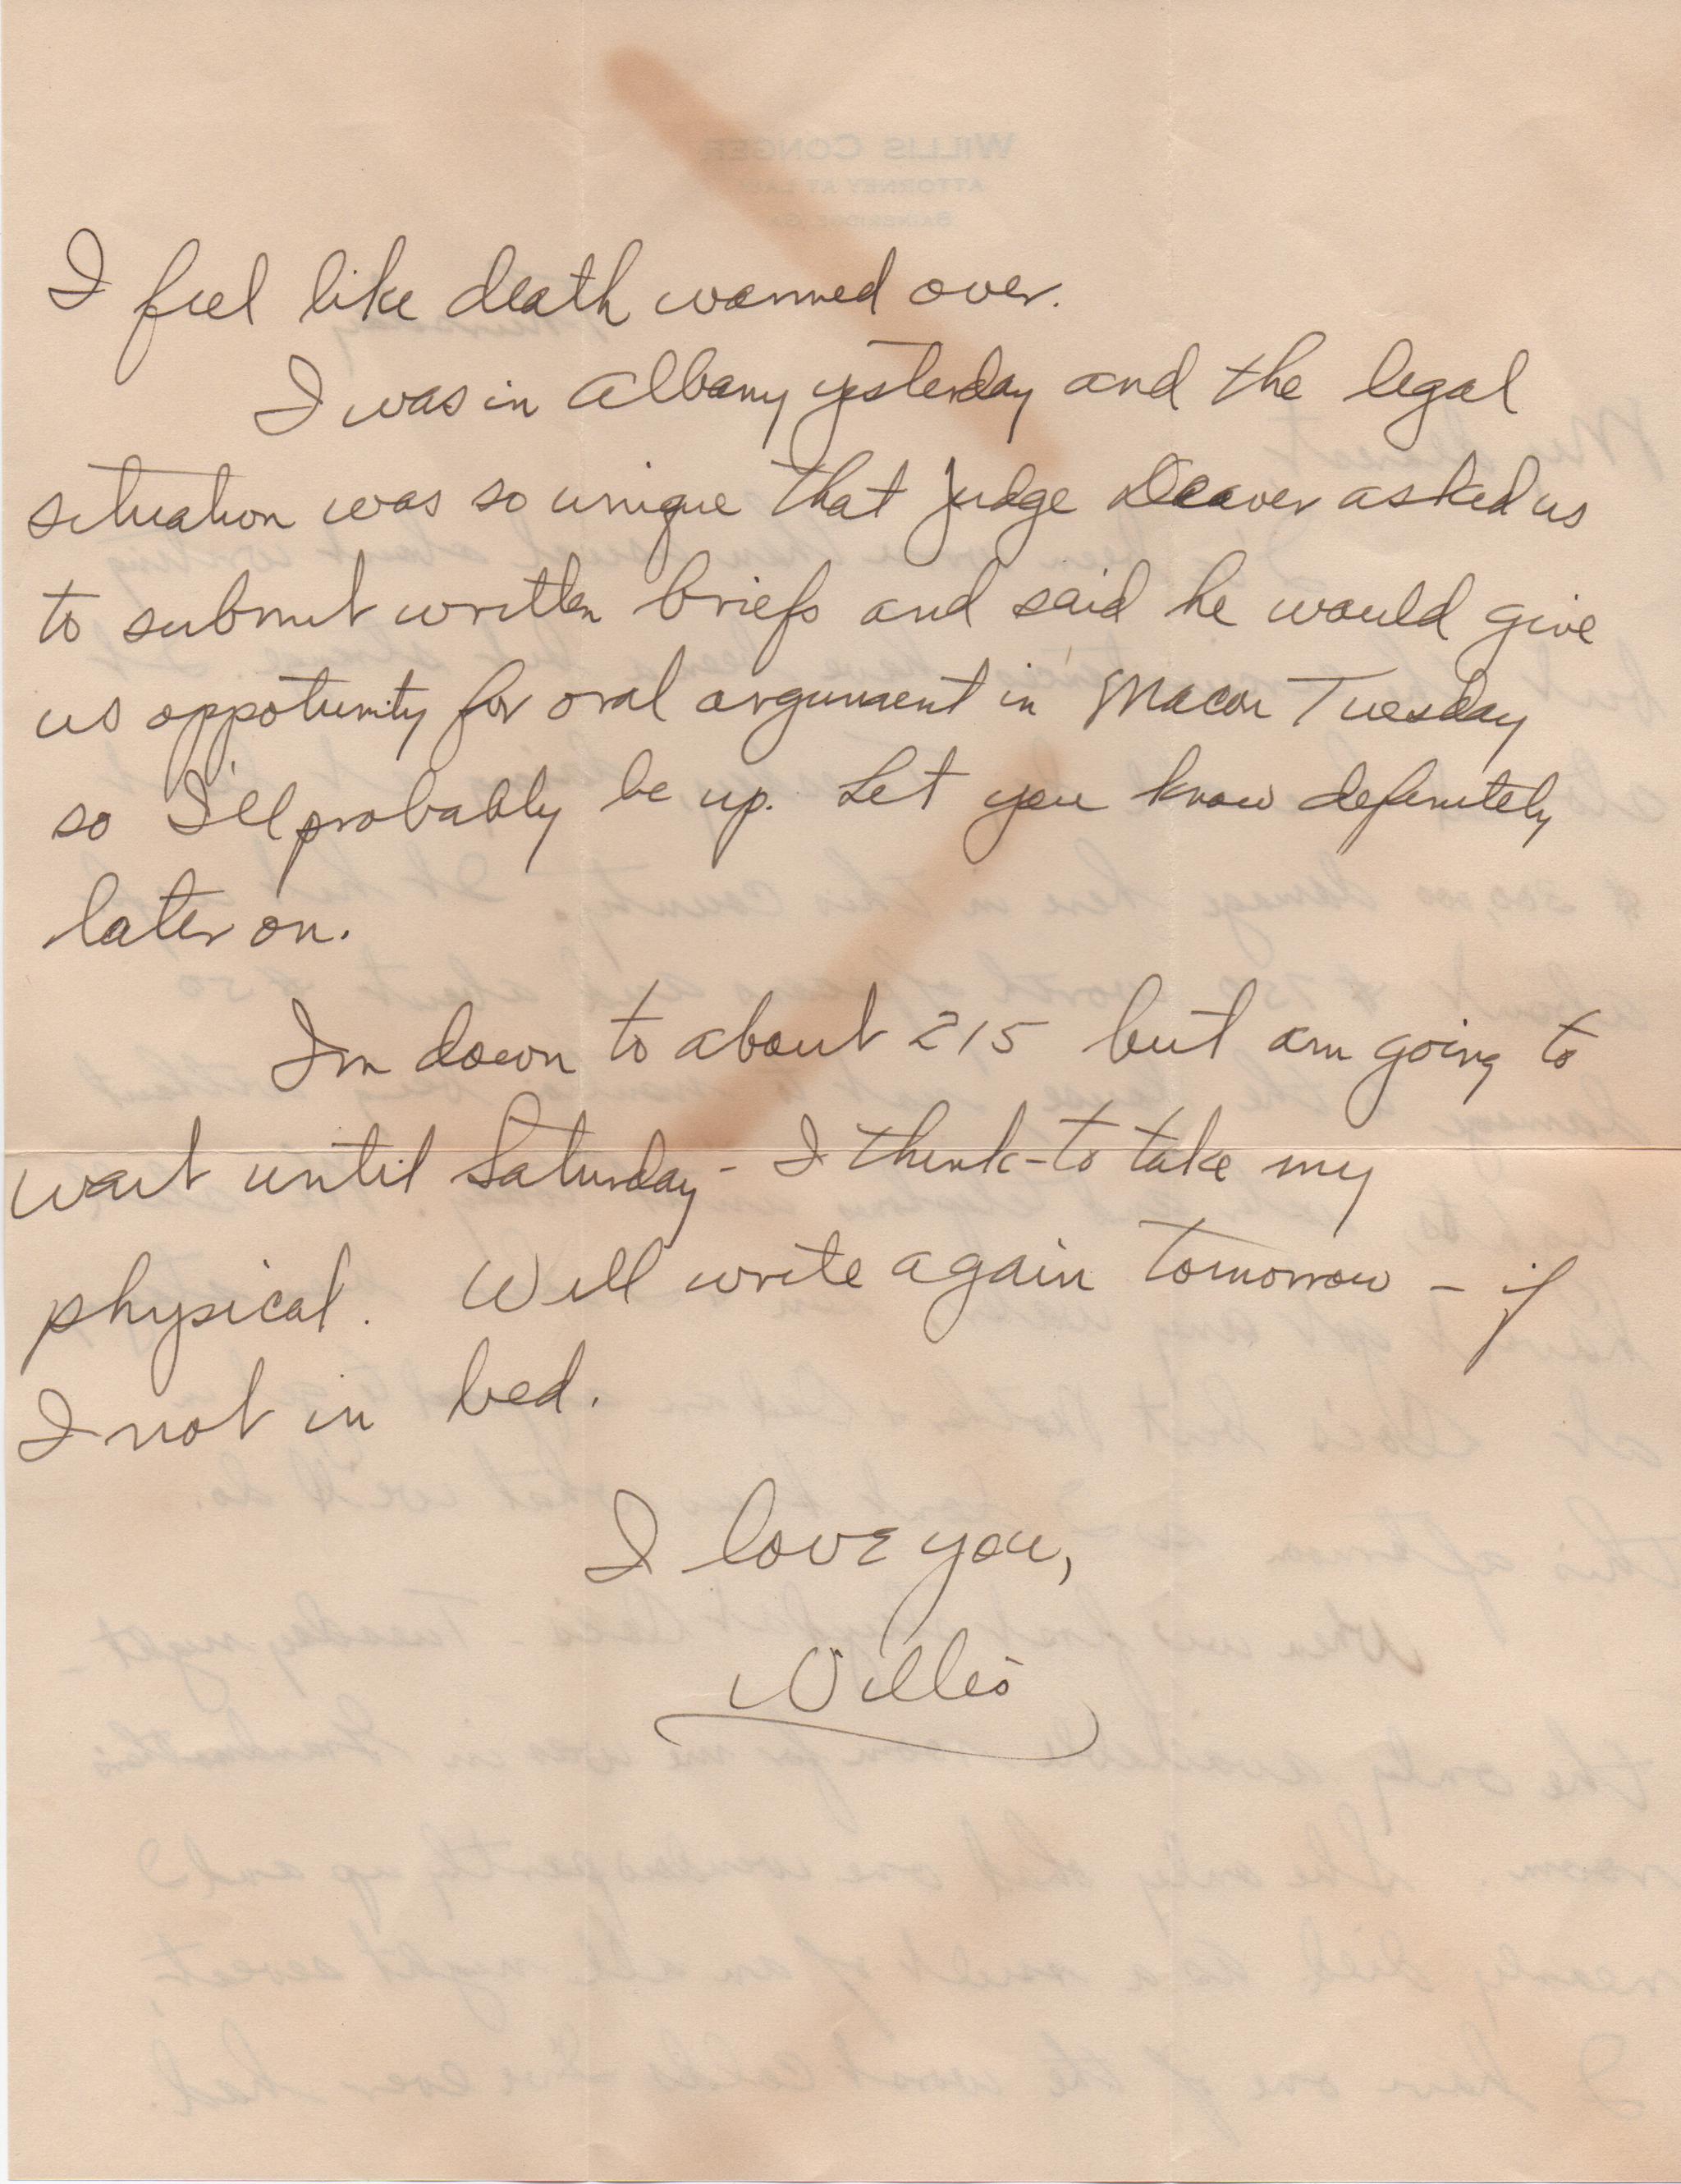 I feel like death warmed over.
I was in Albany yesterday and the legal
situation was so unique that Judge Deaver asked us
to submit written briefs and said he would give
us oppotunity for oral argument in Macon Tuesday
so I'll probably be up. Let you know definitely
later on.
Im down to about 215 but am going to
wait until Saturday - I think - to take my
physical. Will write again tomorrow - if
I not in bed.
I love you,
Willis